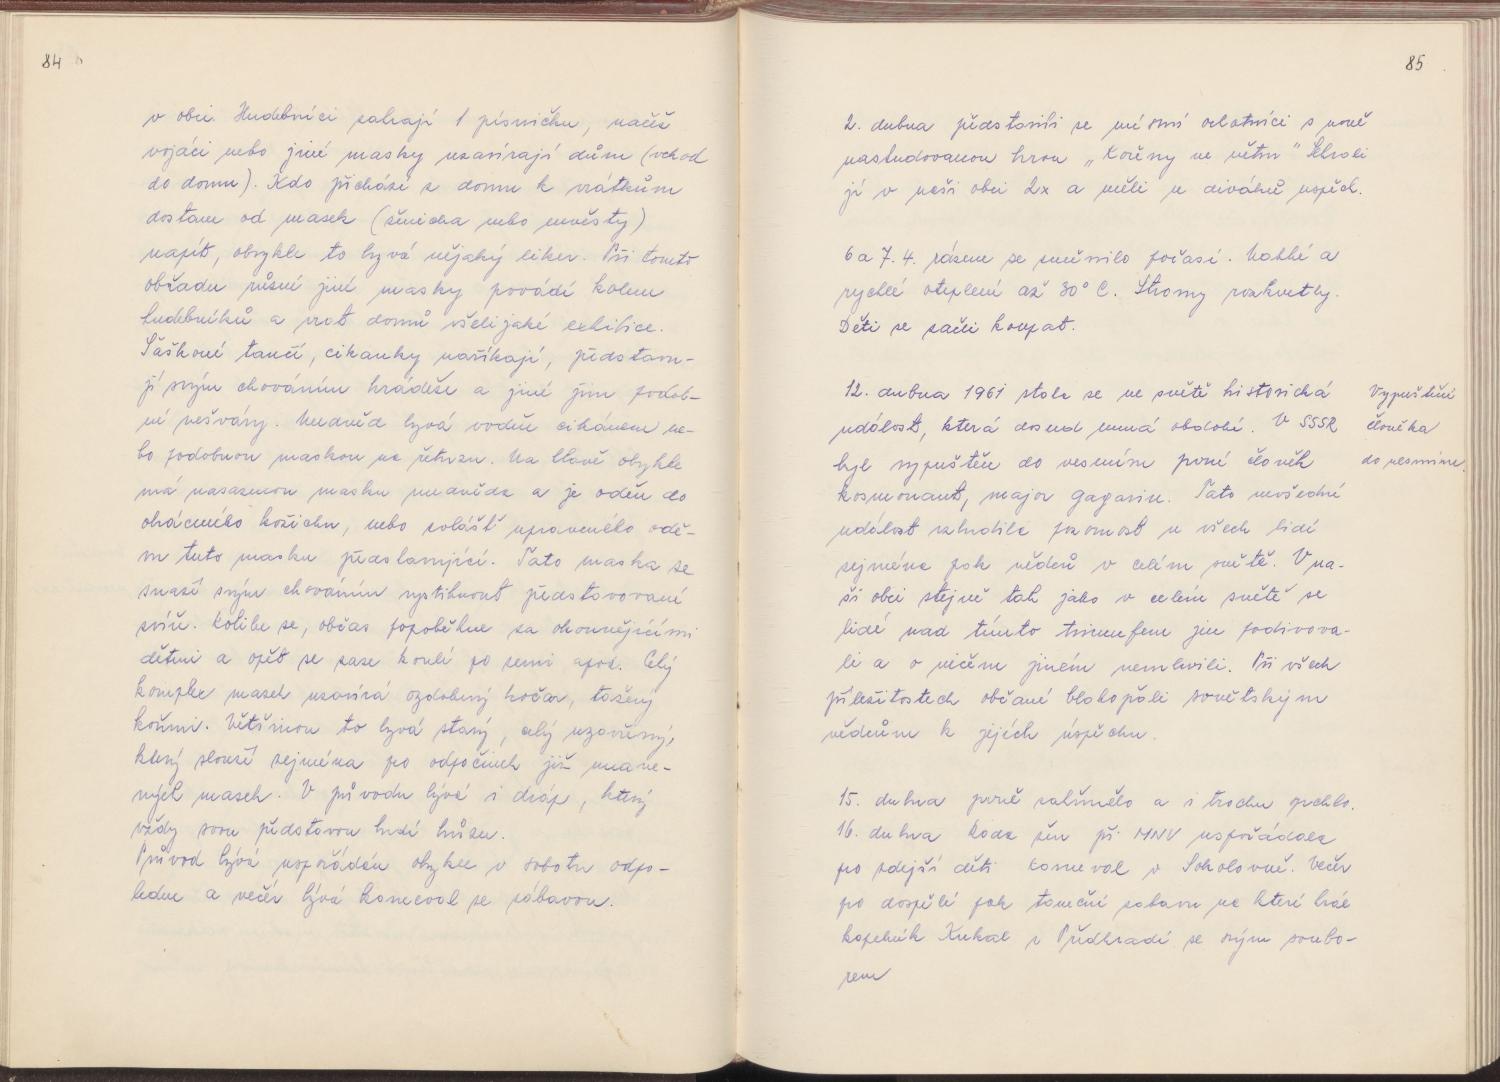 84
v obci. Hudebníci zahrají 1 písničku, načež
vojáci nebo jiné masky uzavírají dům (vchod
do domu). Kdo přichází z domu k vrátkům
dostane od masek (ženicha nebo nevěsty)
napít, obvykle to bývá nějaký liker. Při tomto
obřadu různé jiné masky provádí kolem
hudebníků a vrat domů všelijaké exhibice.
Šaškové tančí, cikanky naříkají, představu-
jí svým chováním krádeže a jiné jim podob-
né nešváry. Medvěd bývá voděn cikánem ne-
bo podobnou maskou na řetězu. Na hlavě obvykle
má nasazenou masku medvěda a je oděn do
obráceného kožichu, nebo zvlášť upraveného odě-
vu tuto masku představující. Tato maska se
snaží svým chováním vystihnout představované
zvíře. Kolibe se, občas popoběhne za okounějícími
dětmi a opět se zase koulí po zemi apod. Celý
komplex masek uzavírá ozdobený kočár, tažený
koňmi. Většinou to bývá starý, celý uzavřený,
který slouží zejména po odpočinek již unave-
ných masek. V průvodu bývá i dráp, který
vždy svou představou budí hrůzu.
Průvod bývá uspořádán obykle v sobotu odpo-
ledne a večer bývá karneval se zábavou.
85
2. dubna představili se místní ochotníci s nově
nastudovanou hrou „Kořeny ve větru" Sehráli
jí v naší obci 2x a měli u diváků úspěch.
6 a 7. 4. rázem se změnilo počasí. Náhlé a
rychlé oteplení až 30° C. Stromy rozkvetly.
Děti se začli koupat.
12. dubna 1961 stala se ve světě historická
událost, která dosud nemá období. V SSSR
byl vypuštěn do vesmíru první člověk
kosmonaut, major Gagarin. Tato nevšední
událost vzbudila pozornost u všech lidí
zejména pak vědců v celém světě. V na-
ší obci stejně tak jako v celém světě se
lidé nad tímto triumfem jen podivova-
li a o ničem jiném nemluvili. Při všech
příležitostech občané blahopřáli sovětským
vědcům k jejich úspěchu.
Vypuštění
člověka
do vesmíru.
15. dubna prvně zahřmělo a i trochu sprchlo.
16. dubna Rada žen při MNV uspořádala
po zdejší děti karneval v Sokolovně. Večer
po dospělé pak taneční zabavu na které hrál
kapelník Kukal z Předhradí se svým soubo-
rem